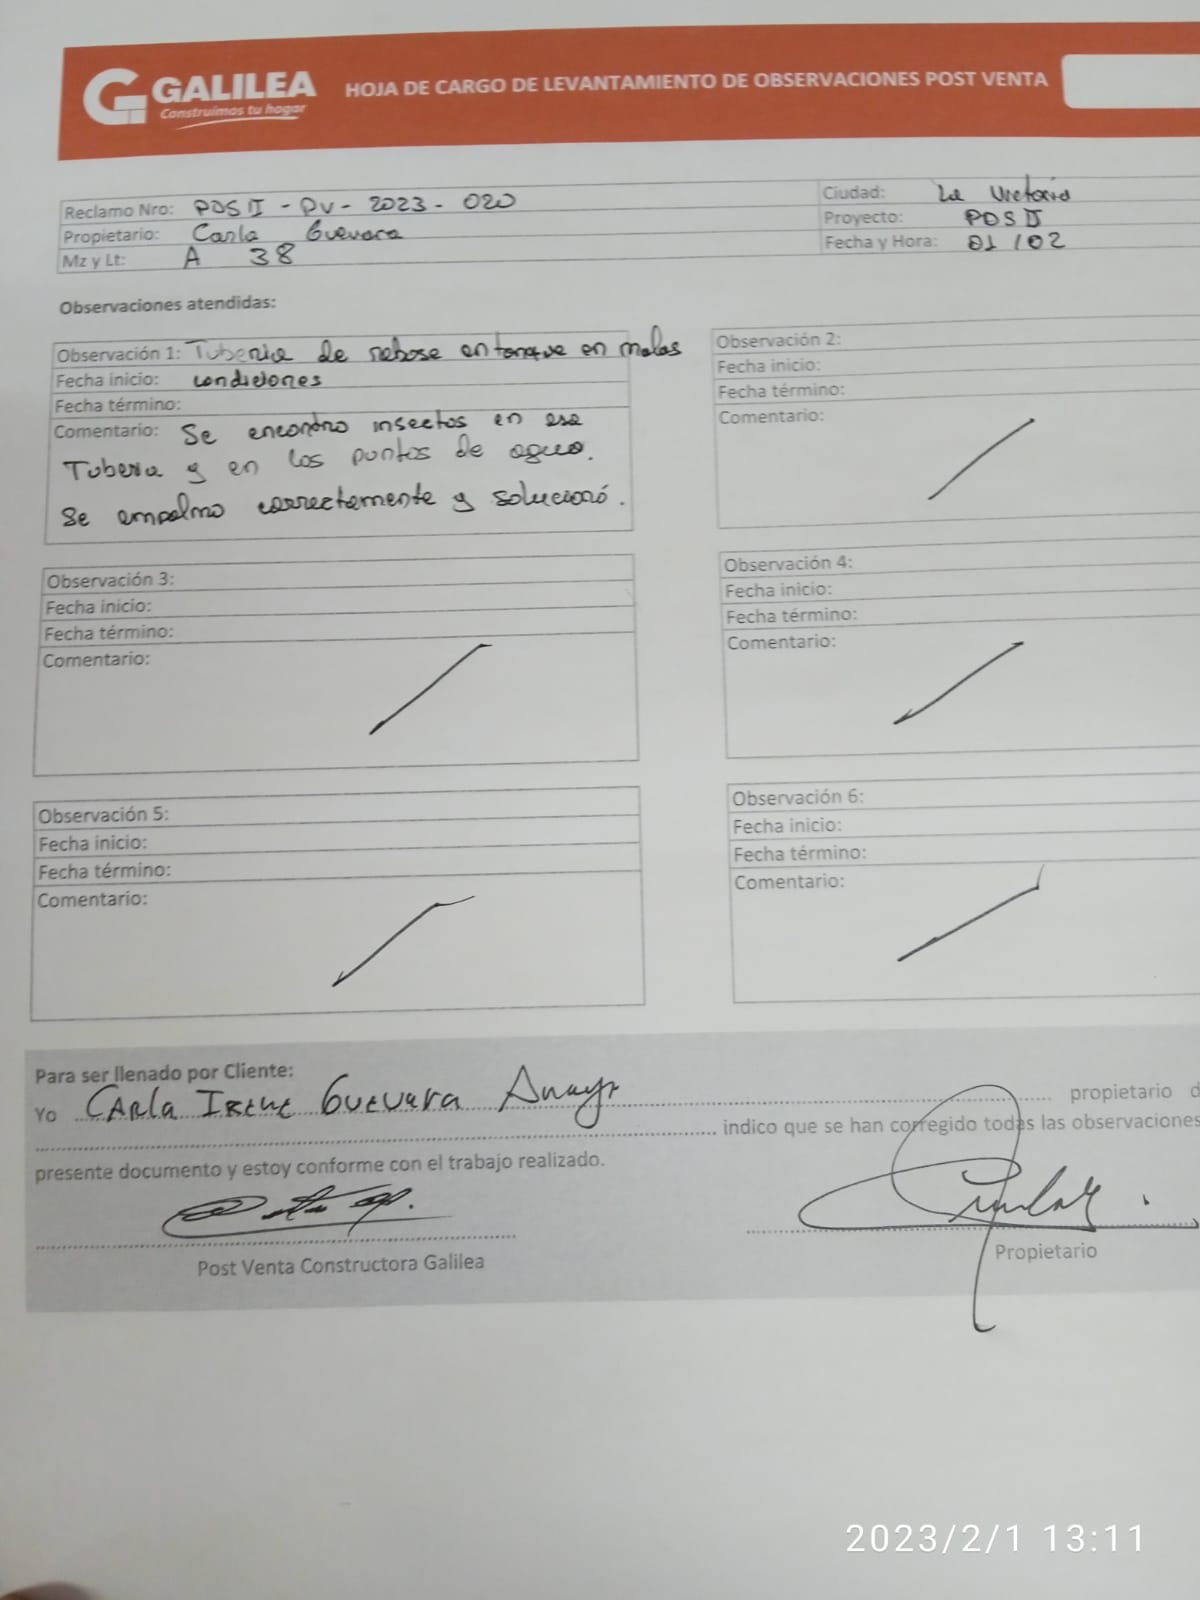 GALILEA
Construimos tu hogar
HOJA DE CARGO DE LEVANTAMIENTO DE OBSERVACIONES POST VENTA
Reclamo Nro: PDS II - PV - 2023 - 020
Ciudad: La Victoria
Propietario: Carla Guevara
Proyecto: PDS II
Mz y Lt: A 38
Fecha y Hora: 01 / 02
Observaciones atendidas:
Observación 1: Tuberia de rebose en tanque en malas
Fecha inicio: condiciones
Fecha término:
Comentario: Se encontro insectos en esa
Tuberia y en los puntos de agua.
Se empalmo correctamente y solucionó.
Observación 2:
Fecha inicio:
Fecha término:
Comentario:
Observación 3:
Fecha inicio:
Fecha término:
Comentario:
Observación 4:
Fecha inicio:
Fecha término:
Comentario:
Observación 5:
Fecha inicio:
Fecha término:
Comentario:
Observación 6:
Fecha inicio:
Fecha término:
Comentario:
Para ser llenado por Cliente:
Yo CARla IRENE GUEVARA Anaya propietario d
indico que se han corregido todas las observaciones
presente documento y estoy conforme con el trabajo realizado.
Post Venta Constructora Galilea
Propietario
2023/2/1 13:11